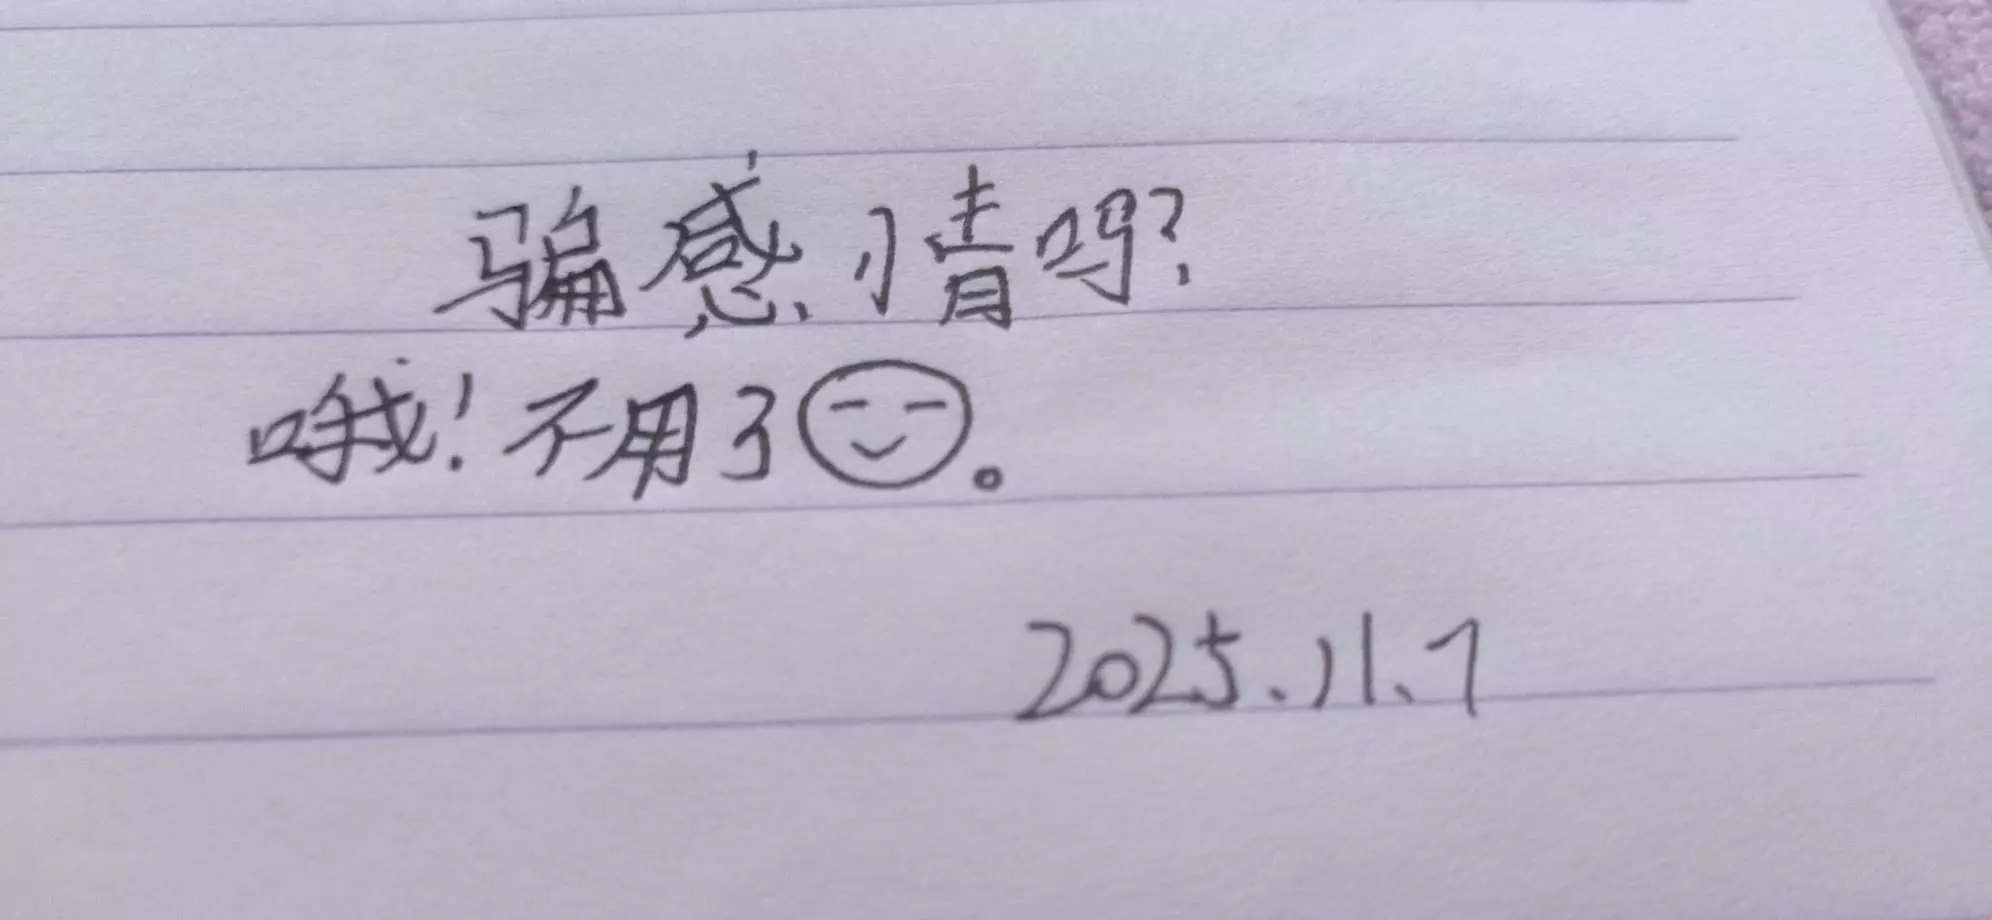 骗感情吗?
哦!不用了😊。
2025.11.7